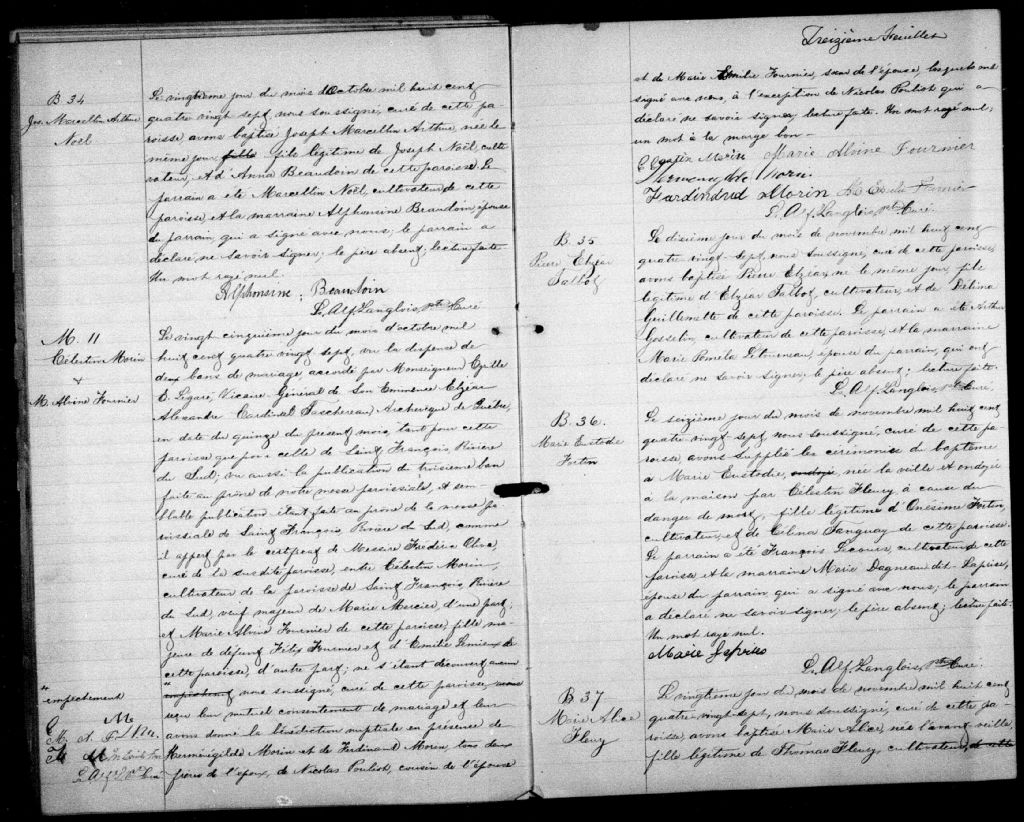 B 34
Jos. Marcellin Arthur
Noël
Le vingtième jour du mois d'Octobre mil huit cent
quatre vingt sept, nous soussigné, curé de cette pa
roisse, avons baptisé Joseph Marcellin Arthur, né le
même jour, fils légitime de Joseph Noël, culti
vateur, et d'Anna Beaudoin de cette paroisse. Le
parrain a été Marcellin Noël, cultivateur de cette
paroisse, et la marraine Alphonsine Beaudoin, épouse
du parrain, qui a signé avec nous; le parrain a
déclaré ne savoir signer; le père absent; lecture faite.
Un mot rayé nul.
Alphonsine Beaudoin
L. Alf. Langlois, ptre Curé
M. 11
Célestin Morin
+
M. Alvine Fournier
Le vingt cinquième jour du mois d'octobre mil
huit cent quatre vingt sept, vu la dispense de
deux bans de mariage, accordé par Monseigneur Cyrille
E. Légaré, Vicaire Général de Son Eminence Elzéar
Alexandre Cardinal Taschereau, Archevêque de Québec,
en date du quinze du présent mois, tant pour cette
paroisse que pour celle de Saint François, Rivière
du Sud; vu aussi la publication du troisième ban
faite au prône de notre messe paroissiale, et sem-
blable publication étant faite au prône de la messe pa
roissiale de Saint François, Rivière du Sud, comme
il appert par le certificat de Messire Frédéric
curé de la susdite paroisse, entre Célestin Morin,
cultivateur de la paroisse de Saint François, Rivière
du Sud, veuf majeur de Marie Mercier, d'une part;
et Marie Alvine Fournier de cette paroisse, fille ma
jeure de défunt Félix Fournier et d'Emélie Lemieux de
cette paroisse, d'autre part; ne s'étant découvert aucun
empêchement
nous soussigné, curé de cette paroisse, avons
reçu leur mutuel consentement de mariage et leur
avons donné la bénédiction nuptiale en présence de
Herménégilde Morin et de Ferdinand Morin, tous deux
frères de l'époux, de Nicolas Pouliot, cousin de l'épouse
C. M.
M. A. F.
Treizième feuillet
et de Marie Emilie Fournier, sœur de l'épouse, lesquels ont
signé avec nous, à l'exception de Nicolas Pouliot qui a
déclaré ne savoir signer, lecture faite. Un mot rayé nul,
un mot à la marge bon.
Morin Marie Alvine Fournier
Morin
Fardindnd Morin
L. Alf. Langlois, ptre Curé.
B. 35
Pierre Elzéar
Talbot
Le dixième jour du mois de novembre mil huit cent
quatre vingt sept, nous soussigné, curé de cette paroisse,
avons baptisé Pierre Elzéar, né le même jour, fils
légitime d'Elzéar Talbot, cultivateur, et de Délina
Guillemette de cette paroisse. Le parrain a été Arthur
Gosselin, cultivateur de cette paroisse, et la marraine
Marie Paméla Létourneau, épouse du parrain, qui ont
déclaré ne savoir signer, le père absent; lecture faite.
L. Alf. Langlois, ptre Curé.
B. 36.
Marie Eustodie
Fortin
Le seizième jour du mois de novembre mil huit cent
quatre vingt sept, nous soussigné, curé de cette pa
roisse, avons supplié les cérémonies de baptême
à Marie Eustodie, ondoyé née la veille et ondoyé
à la maison par Célestin Fleury à cause du
danger de mort, fille légitime d'Onésime Fortin,
cultivateur, et de Célina Tanguay de cette paroisse.
Le parrain a été François Lecours, cultivateur de cette
paroisse, et la marraine Marie Dagneau dit Laprise,
épouse du parrain qui a signé avec nous; le parrain
a déclaré ne savoir signer, le père absent; lecture faite.
Un mot rayé nul.
Marie
L. Alf. Langlois, ptre Curé.
B 37
Marie Alice
Fleury
Le vingtième jour du mois de novembre mil huit cent
quatre-vingt-sept, nous soussigné, curé de cette pa
roisse, avons baptisé Marie Alice, née l'avant veille,
fille légitime de Thomas Fleury, cultivateur, de cette